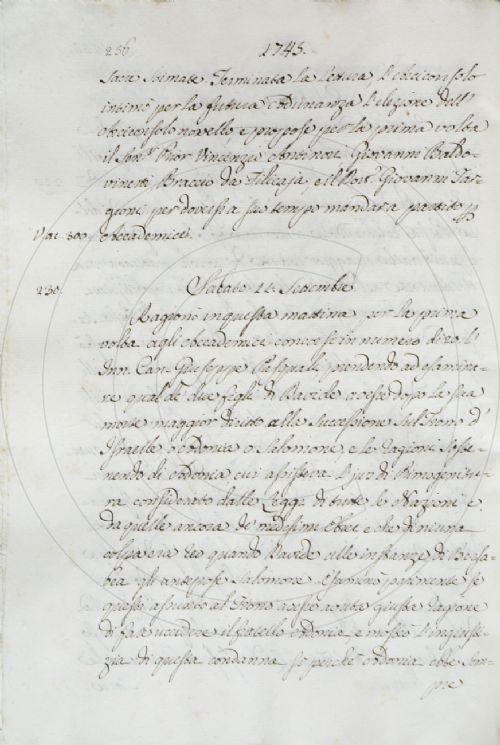 236. 1743.
Sacre Stimate. Terminata la Letura l'Arciconsolo
intimò per la futura Adunanza l'elezione dell'
Arciconsolo novello, e propose per la prima volta
il Sen.re Prior Vincenzio Antinori Giovanni Baldo-
vinetti Braccio da Filicaja, e il Dott. Giovanni Tar-
gioni per doversi a suo tempo mandar a partito p
Accademici.
230. Sabato 14. Settembre
Ragionò in questa mattina per la prima
volta agli Accademici concorsi in numero di 20. l'
Inn. Can. Giuseppe Pasquali, prendendo ad esamina-
re qual de' due figli di Davide avesse dopo la sua
morte maggior diritto alla successione sul Trono d'
Israele Adonia, o Salomone, e le ragioni soste-
nendo di Adonia, cui assisteva l'jus di Primogenitu-
ra considerato dalle Leggi di tutte le Nazioni e
da quelle ancora de' medesimi Ebrei e che di niuna
colpa era reo quando Davide alle instanze di Bersa-
bea gli antepose Salomone. Esaminò parimente se
questi assunto al Trono avesse avuta giusta ragione
di far uccidere il fratello Adonia, e mostrò l'ingiusti-
zia di questa condanna sì perchè Adonia ebbe sem-
pre